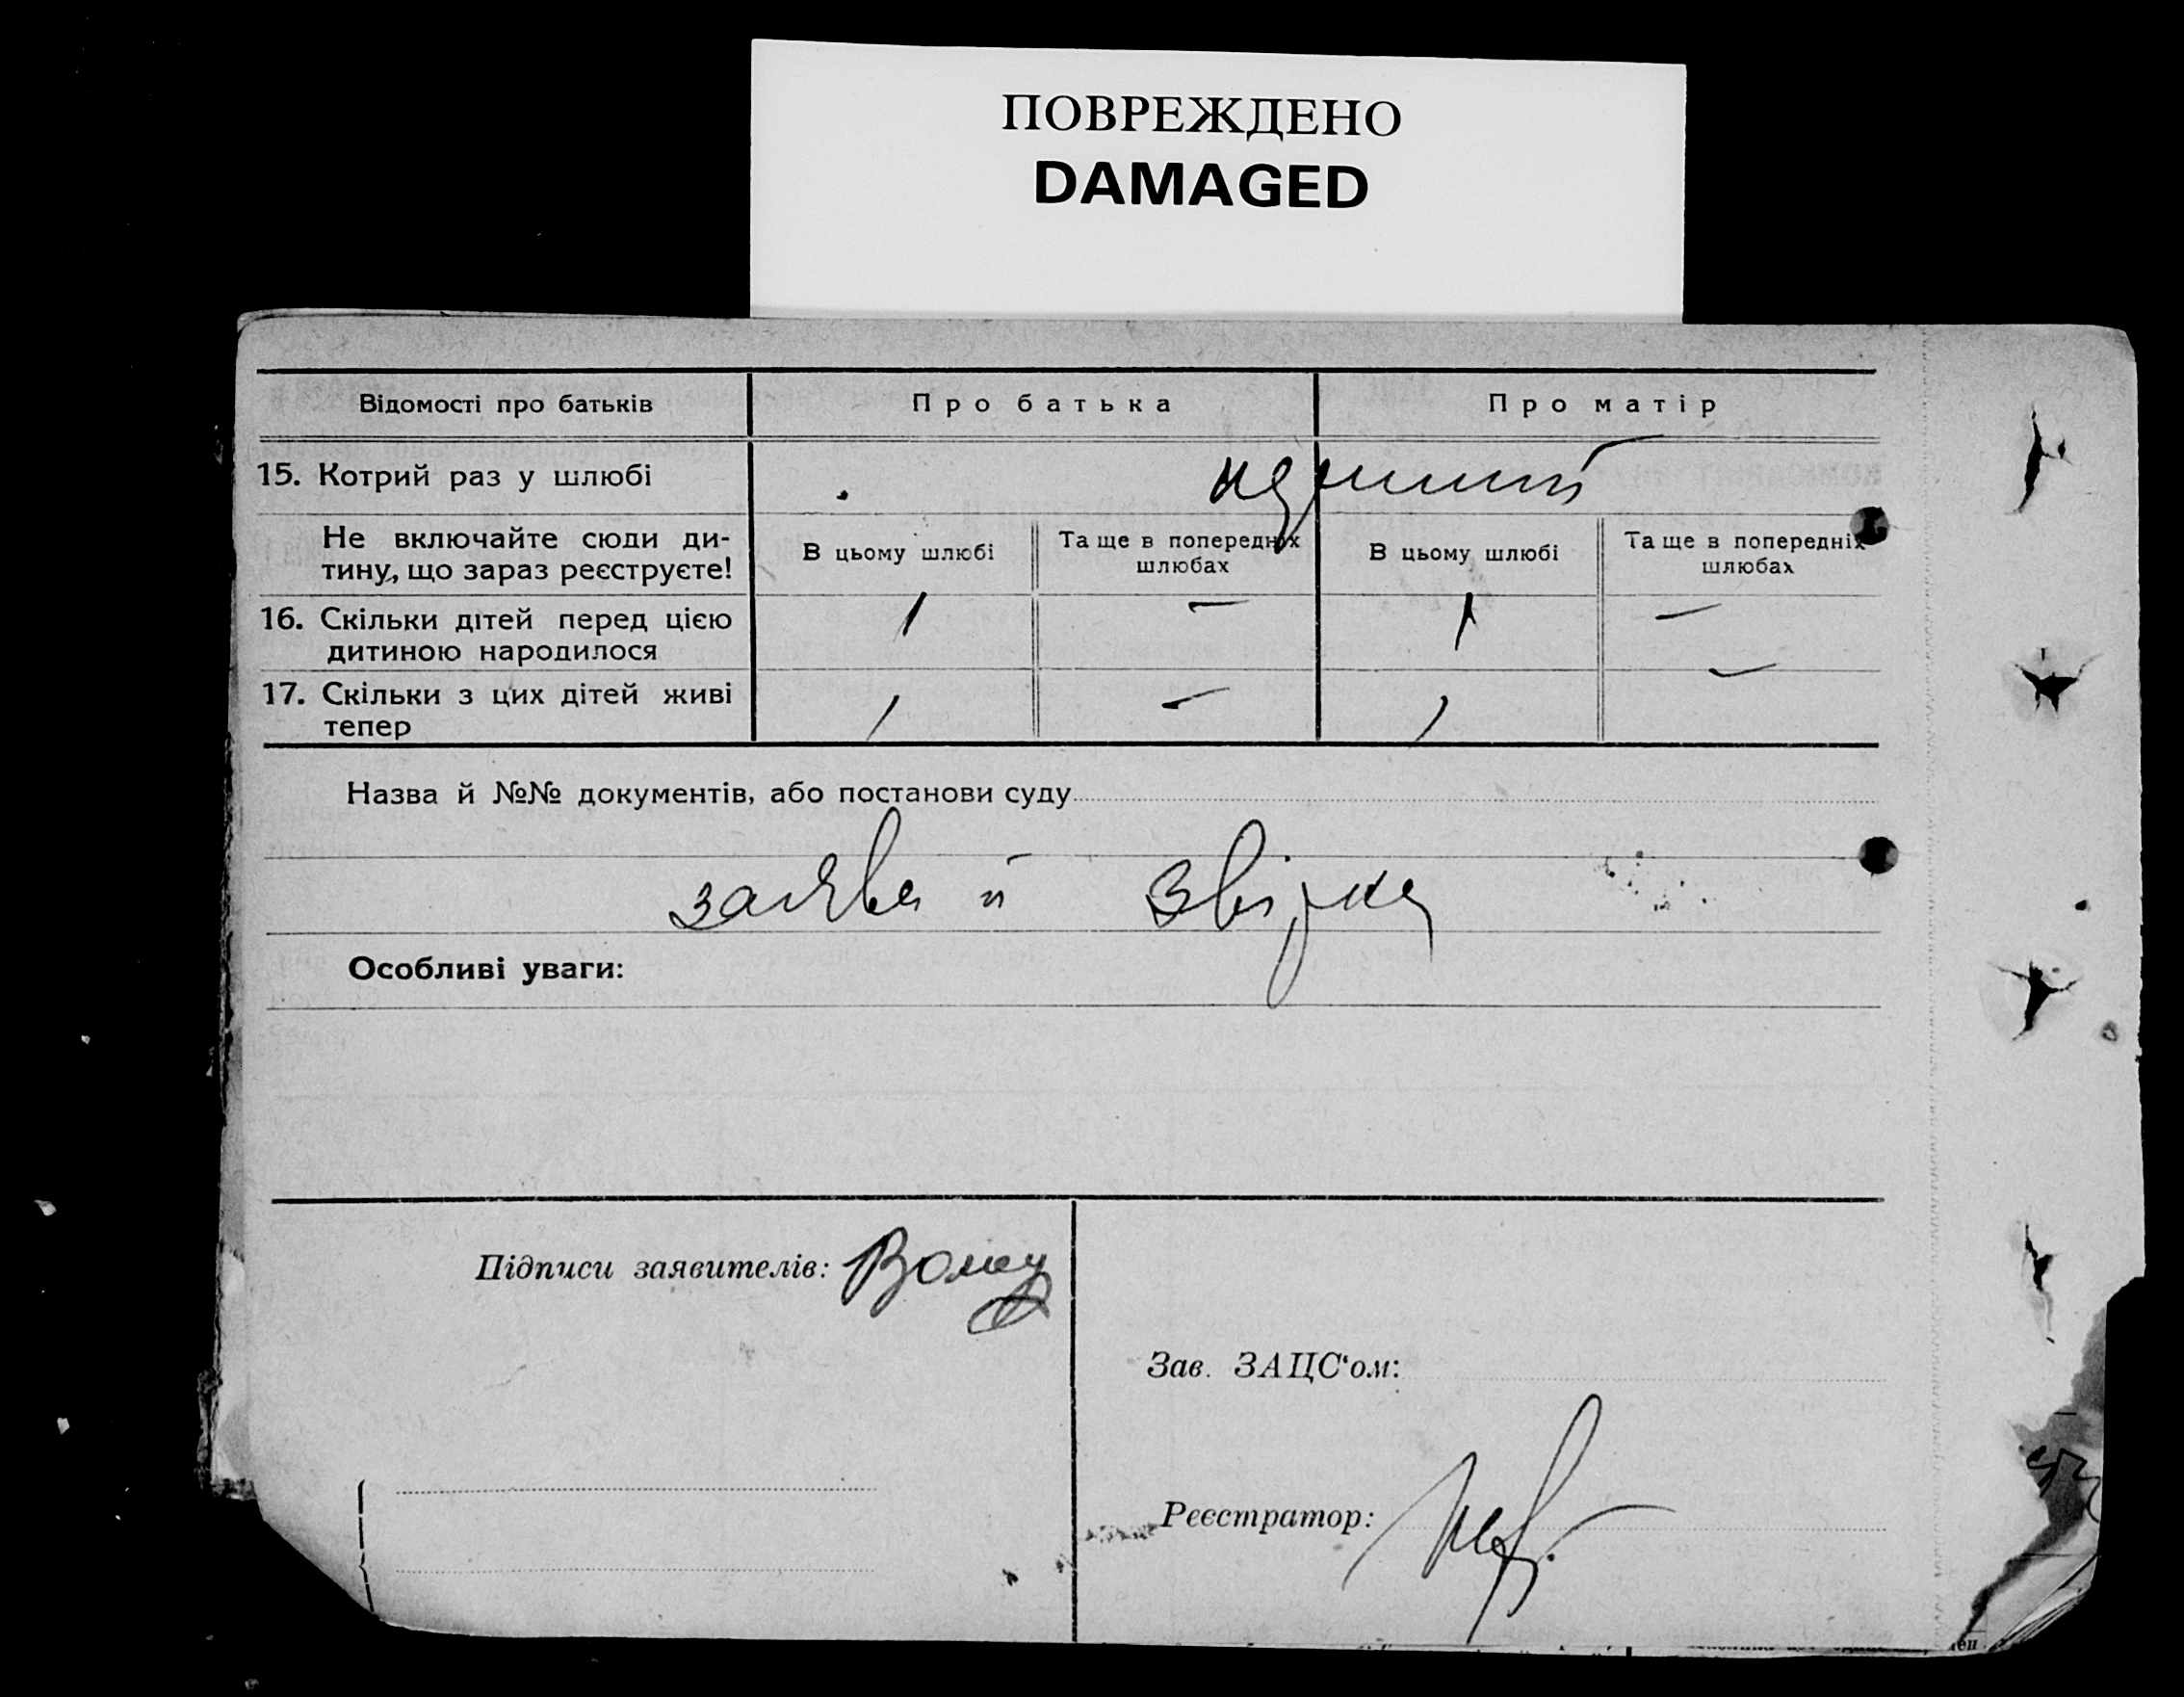 ПОВРЕЖДЕНО
DAMAGED
Відомості про батьків
Про батька
Про матір
15. Котрий раз у шлюбі
перший
Не включайте сюди ди-
тину, що зараз реєструєте!
В цьому шлюбі
Та ще в попередніх
шлюбах
В цьому шлюбі
Та ще в попередніх
шлюбах
16. Скільки дітей перед цією
дитиною народилося
1 — 1 —
17. Скільки з цих дітей живі
тепер
1 — 1 —
Назва й №№ документів, або постанови суду
заява й звірка
Особливі уваги:
Підписи заявителів:
Зав. ЗАЦС‘ом:
Реєстратор: